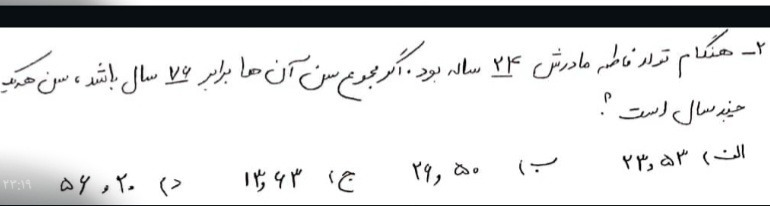 ۲- هنگام تولد فاطمه مادرش ۲۴ ساله بود. اگر مجموع سن آن ها برابر ۷۶ سال باشد، سن هریک
چند سال است؟
الف) ۵۳ و ۲۳ ب) ۵۰ و ۲۶ ج) ۶۳ و ۱۳ د) ۲۰ و ۵۶
۲۳:۱۹